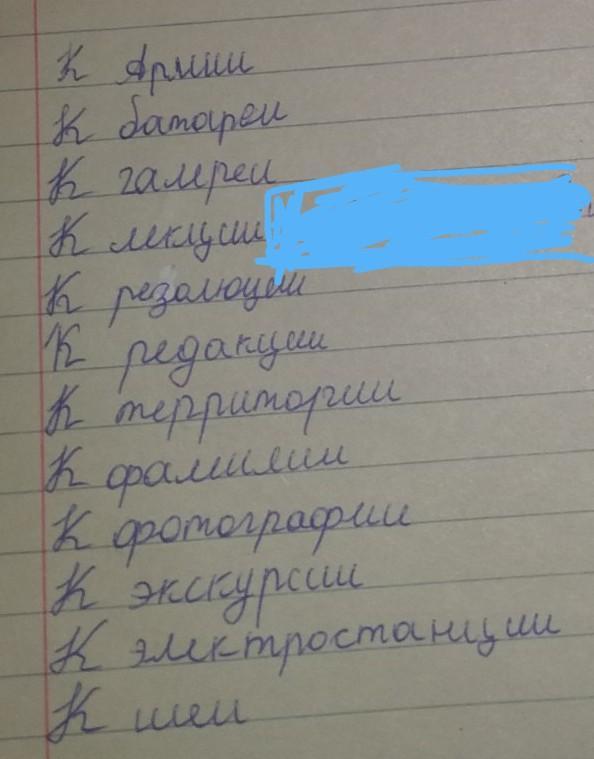 К Армии
К батареи
К галереи
К лекции
К резолюции
К редакции
К территории
К фамилии
К фотографии
К экскурсии
К электростанции
К шеи